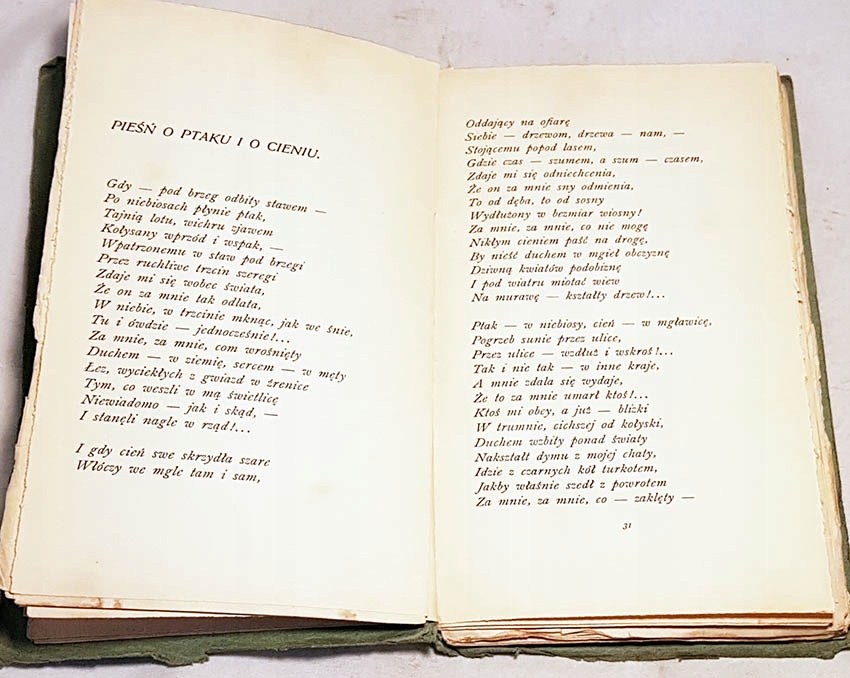 PIEŚŃ O PTAKU I O CIENIU.
Gdy — pod brzeg odbity stawem —
Po niebiosach płynie ptak,
Tajnią lotu, wichru zjawem
Kołysany wprzód i wspak, —
Wpatrzonemu w staw pod brzegi
Przez ruchliwe trzcin szeregi
Zdaje mi się wobec świata,
Że on za mnie tak odlata,
W niebie, w trzcinie mknąc, jak we śnie,
Tu i ówdzie — jednocześnie!...
Za mnie, za mnie, com wrośnięty
Duchem — w ziemię, sercem — w męty
Łez, wyciekłych z gwiazd w źrenice
Tym, co weszli w mą świetlicę
Niewiadomo — jak i skąd, —
I stanęli nagle w rząd!...
I gdy cień swe skrzydła szare
Włóczy we mgle tam i sam,
Oddający na ofiarę
Siebie — drzewom, drzewa — nam, —
Stojącemu popod lasem,
Gdzie czas — szumem, a szum — czasem,
Zdaje mi się odniechcenia,
Że on za mnie sny odmienia,
To od dęba, to od sosny
Wydłużony w bezmiar wiosny!
Za mnie, za mnie, co nie mogę
Nikłym cieniem paść na drogę,
By nieść duchem w mgieł obczyznę
Dziwną kwiatów podobiznę
I pod wiatru miotać wiew
Na murawę — kształty drzew!...
Ptak — w niebiosy, cień — w mgławicę,
Pogrzeb sunie przez ulice,
Przez ulice — wzdłuż i wskroś!...
Tak i nie tak — w inne kraje,
A mnie zdala się wydaje,
Że to za mnie umarł ktoś!...
Ktoś mi obcy, a już — blizki
W trumnie, cichszej od kołyski,
Duchem wzbity ponad światy
Nakształt dymu z mojej chaty,
Idzie z czarnych kół turkotem,
Jakby właśnie szedł z powrotem
Za mnie, za mnie, co — zaklęty —
31